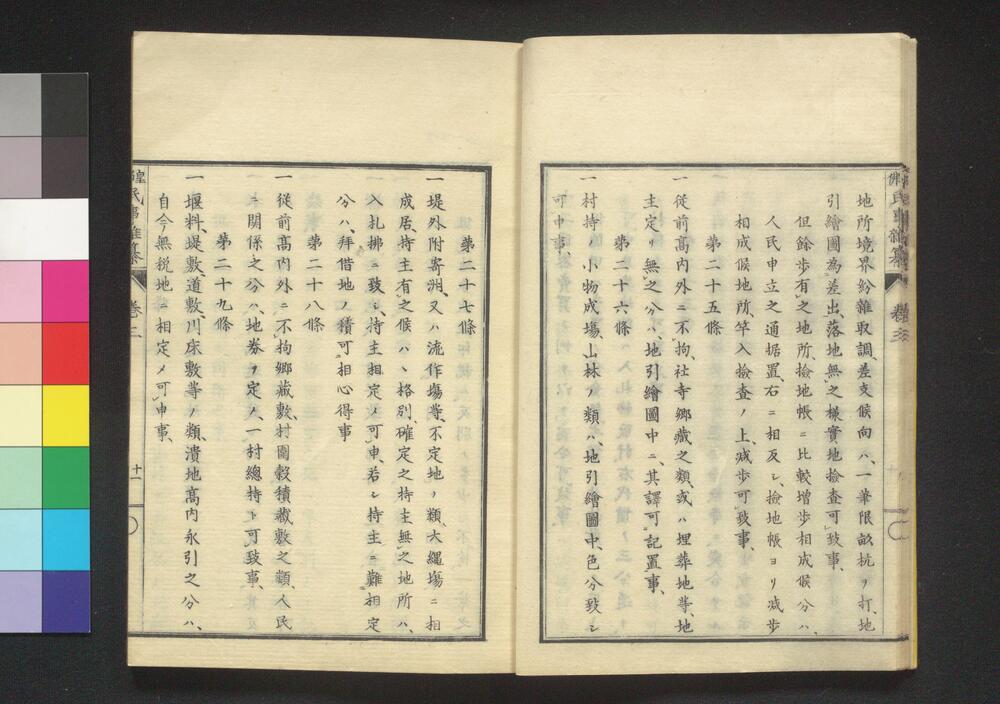 地所境界紛雜取調、差支候向ハ、一筆限畝杭ヲ打、地
引繪圖為差出、落地無之樣實地撿査可致事、
但餘歩有之地所、撿地帳ニ比較增歩相成候分ハ、
人民申立之通据置、右ニ相反シ、撿地帳ヨリ減歩
相成候地所、竿入撿査ノ上、减歩可致事、
第二十五條
一從前高內外ニ不拘、社寺鄉藏之類、或ハ埋葬地等、地
主定リ無之分ハ、地引繪圖中ニ、其譯可記置事、
第二十六條
一村持ノ小物成塲、山林ノ類ハ、地引繪圖中、色分致シ
可申事、
第二十七條
一堤外附寄洲、又ハ流作塲等、不定地ノ類、大繩塲ニ相
成居、持主有之候ハヽ格別、確定之持主無之地所ハ、
入札拂ニ致シ、持主相定メ可申、若シ持主ニ難相定
分ハ、拜借地ノ積可相心得事
第二十八條
一從前高內外ニ不拘鄉藏敷、村圍穀積藏敷之類、人民
ニ關係之分ハ、地券ヲ定メ、一村總持ト可致事、
第二十九條
一堰料、堤敷、道敷、川床敷等ノ類、潰地高內永引之分ハ、
自今無稅地ニ相定メ可申事、
卷二
十一